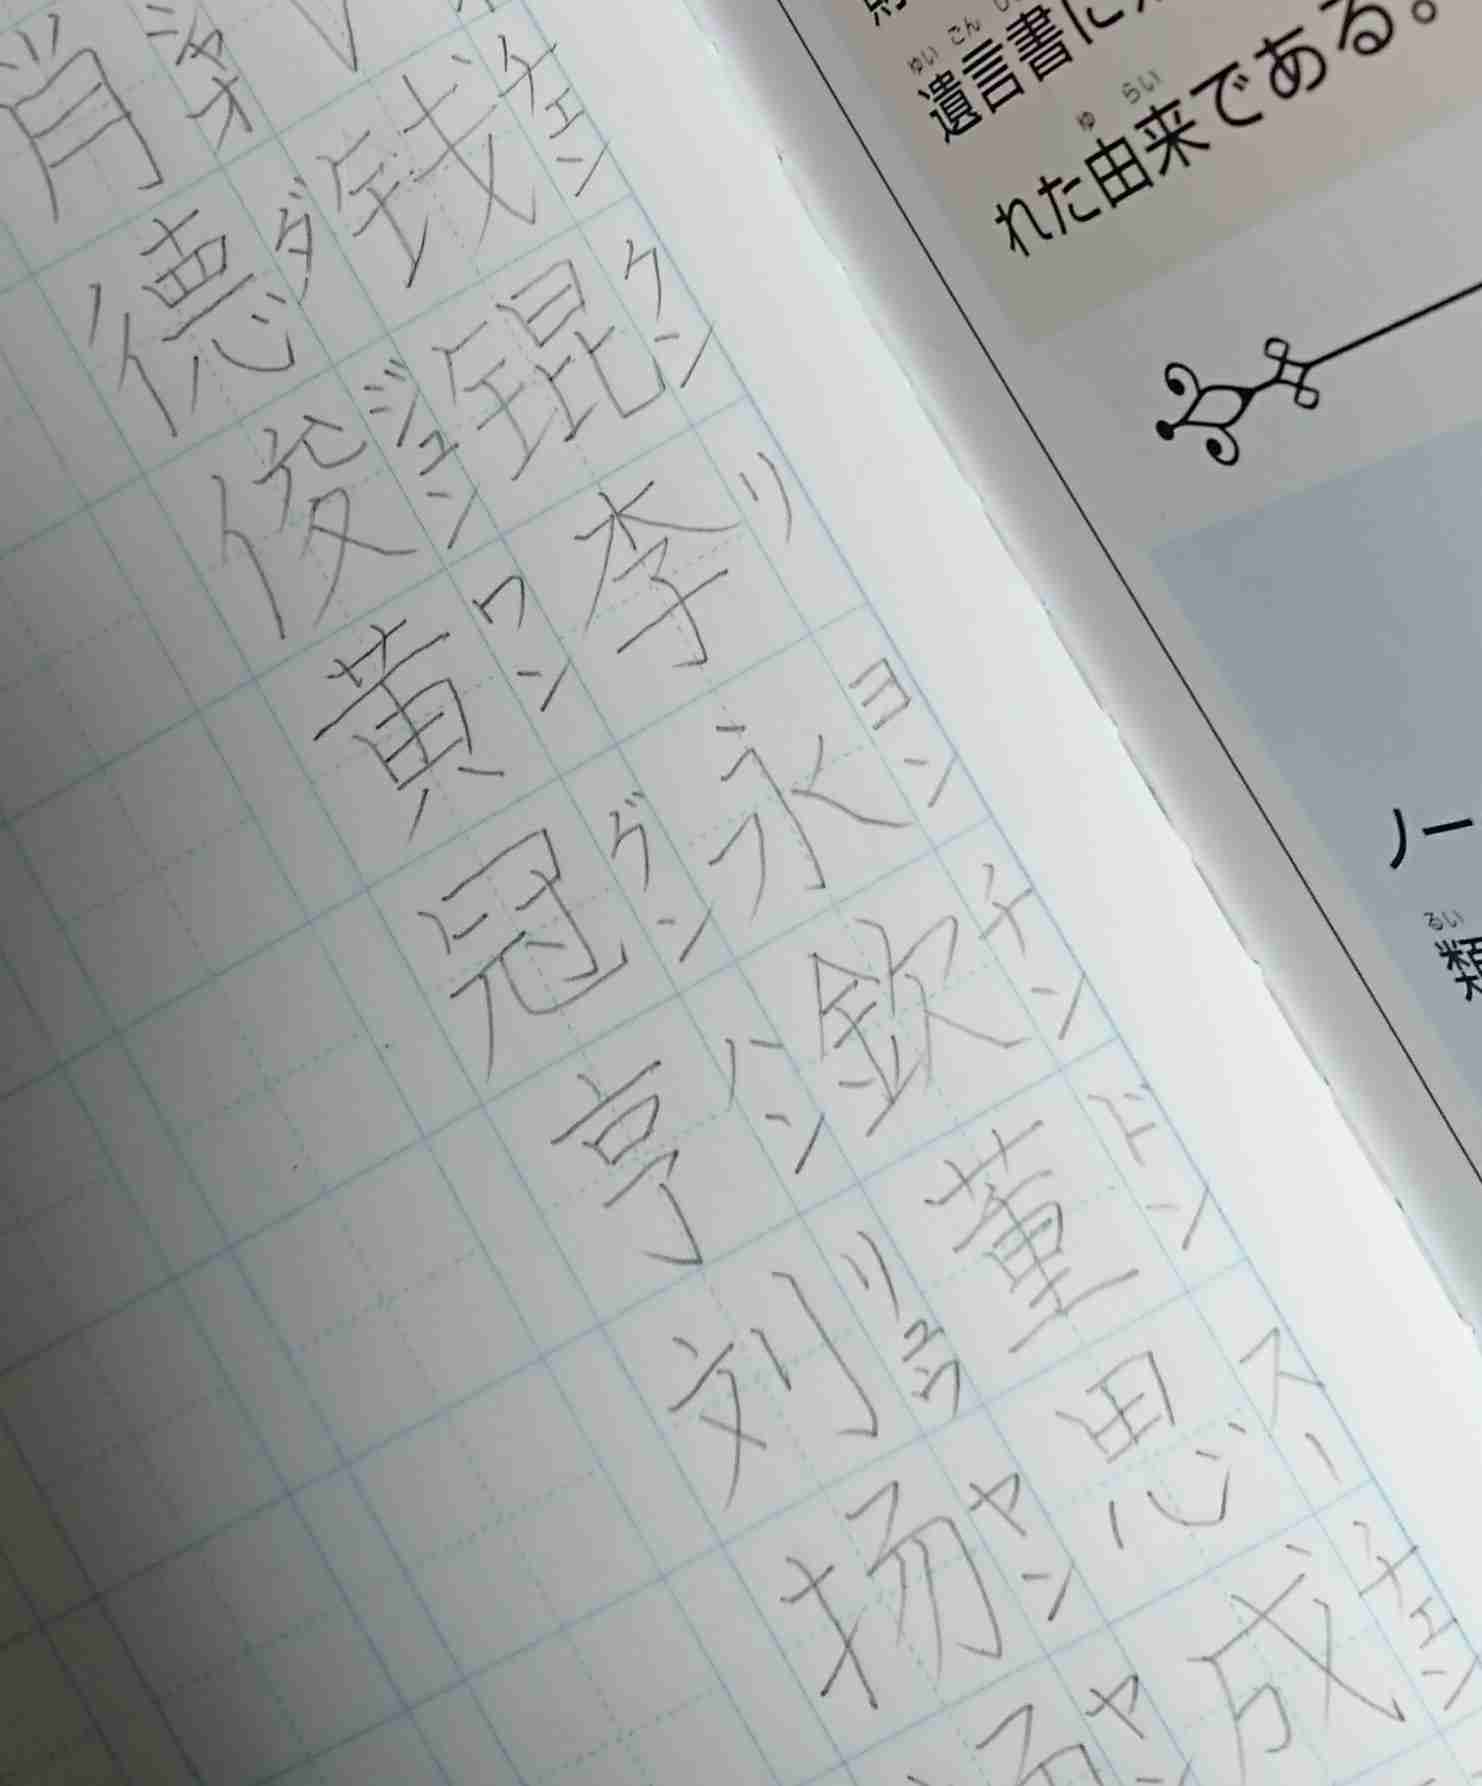 遺言書に
れた由来である。
ゆいごん
ゆらい
ノー
るい
類
チェン
钱
クン
锟
リ
李
ヨン
永
チン
欽
ドン
董
スー
思
チェン
成
シャオ
肖
ダ
德
ジュン
俊
ワン
黄
グン
冠
ハン
亨
リュウ
刘
ヤン
扬
ヤン